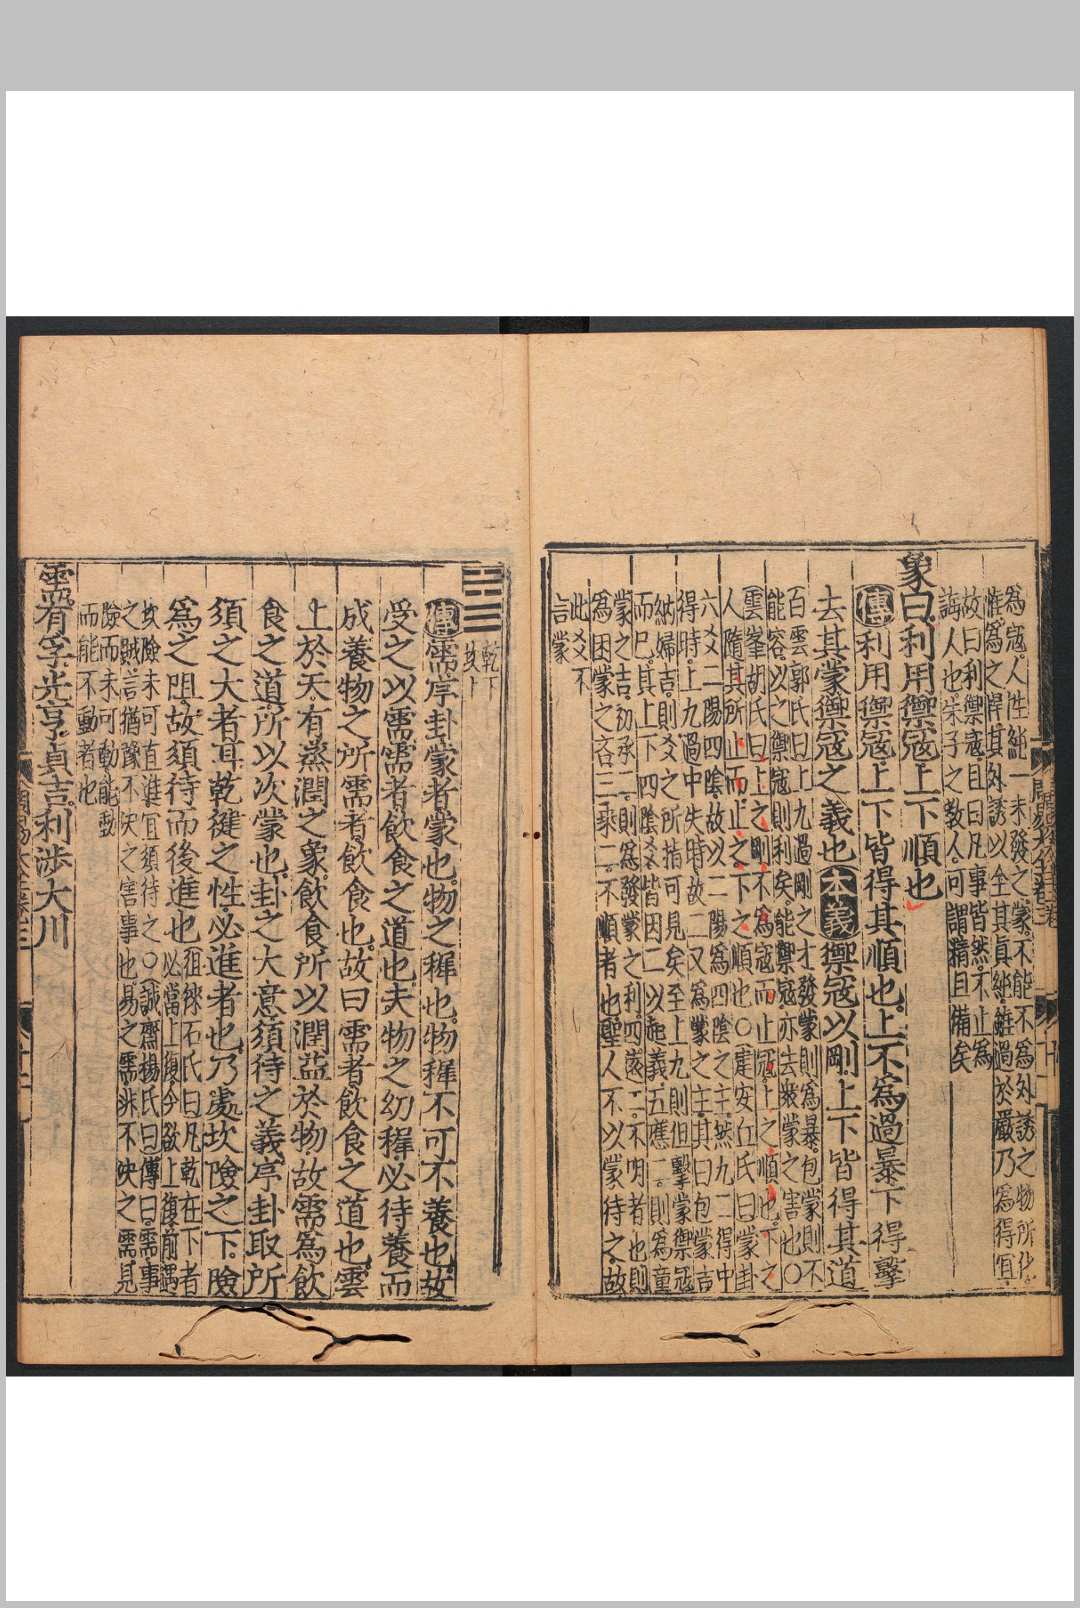 為寇人性純一未發之蒙不能不為外誘之物所化
惟為之捍其外誘以全其真純雖過於嚴乃為得宜
故曰利禦寇且曰凡事皆然不止為
誨人也朱子之教人可謂精且備矣
象曰利用禦寇上下順也
傳利用禦寇上下皆得其順也上不為過暴下得擊
去其蒙禦寇之義也本義禦寇以剛上下皆得其道
百雲郭氏曰上九過剛之才發蒙則為暴包蒙則不
能容以之禦寇則利矣能禦寇亦去衆蒙之害也○
雲峯胡氏曰上之剛不為寇而止寇上之順也下之
人隨其所止而止之下之順也○建安丘氏曰蒙卦
六爻二陽四陰故以二陽為四陰之主然九二得中
得時上九過中失時故二又為蒙之主其曰包蒙吉
納婦吉則爻之所指可見矣至上九則但擊蒙禦寇
而巳其上下四陰爻皆因二以起義五應二則為童
蒙之吉初承二則為發蒙之利四遠二不明者也則
為困蒙之吝三乘二不順者也聖人不以蒙待之故
此爻不
言蒙
乾下
坎上
傳需序卦蒙者蒙也物之穉也物穉不可不養也故
受之以需需者飲食之道也夫物之幼穉必待養而
成養物之所需者飲食也故曰需者飲食之道也雲
上於天有蒸潤之象飲食所以潤益於物故需為飲
食之道所以次蒙也卦之大意須待之義序卦取所
須之大者耳乾健之性必進者也乃處坎險之下險
為之阻故須待而後進也
徂徠石氏曰凡乾在下者
必當上復今欲上復前遇
坎險未可直進宜須待之○誠齋楊氏曰傳曰需事
之賊言猶豫不決之害事也易之需非不決之需見
險而未可動能動
而能不動者也
需有孚光亨貞吉利涉大川